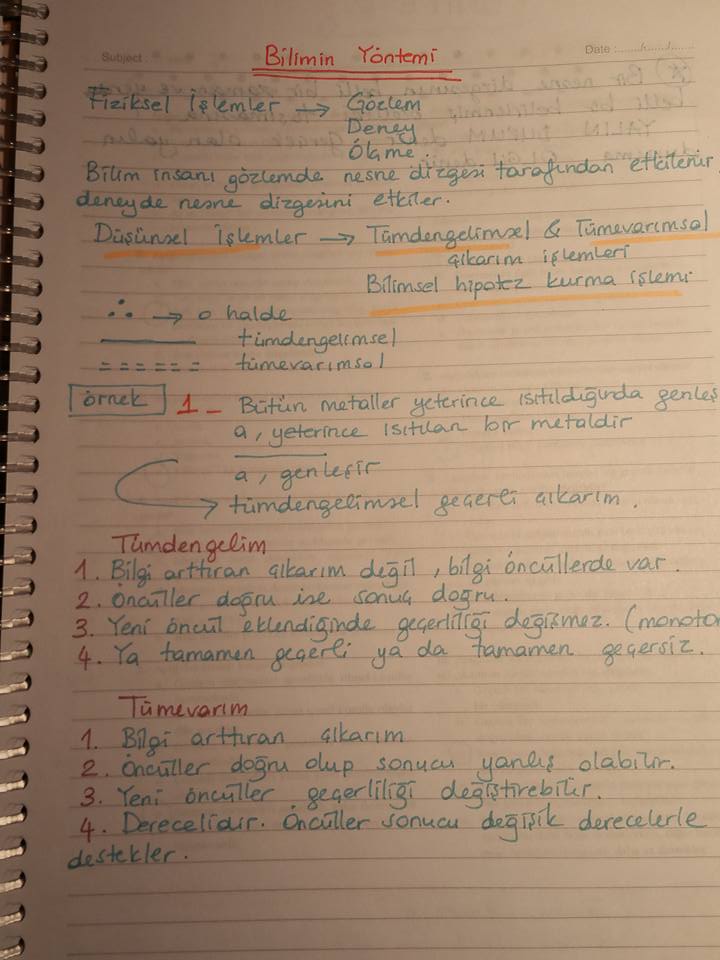 Subject :
Date : ....../....../......
Bilimin Yöntemi
Fiziksel İşlemler → Gözlem
Deney
Ölçme
Bilim insanı gözlemde nesne dizgesi tarafından etkilenir,
deneyde nesne dizgesini etkiler.
Düşünsel İşlemler → Tümdengelimsel & Tümevarımsal
çıkarım işlemleri
Bilimsel hipotez kurma işlemi
∴ → o halde
——— tümdengelimsel
====== tümevarımsal
örnek 1 - Bütün metaller yeterince ısıtıldığında genleş
a, yeterince ısıtılan bir metaldir
a, genleşir
→ tümdengelimsel geçerli çıkarım.
Tümdengelim
1. Bilgi arttıran çıkarım değil, bilgi öncüllerde var.
2. Öncüller doğru ise sonuç doğru.
3. Yeni öncül eklendiğinde geçerliliği değişmez. (monoton
4. Ya tamamen geçerli ya da tamamen geçersiz.
Tümevarım
1. Bilgi arttıran çıkarım
2. Öncüller doğru olup sonucu yanlış olabilir.
3. Yeni öncüller geçerliliği değiştirebilir.
4. Derecelidir. Öncüller sonucu değişik derecelerle
destekler.